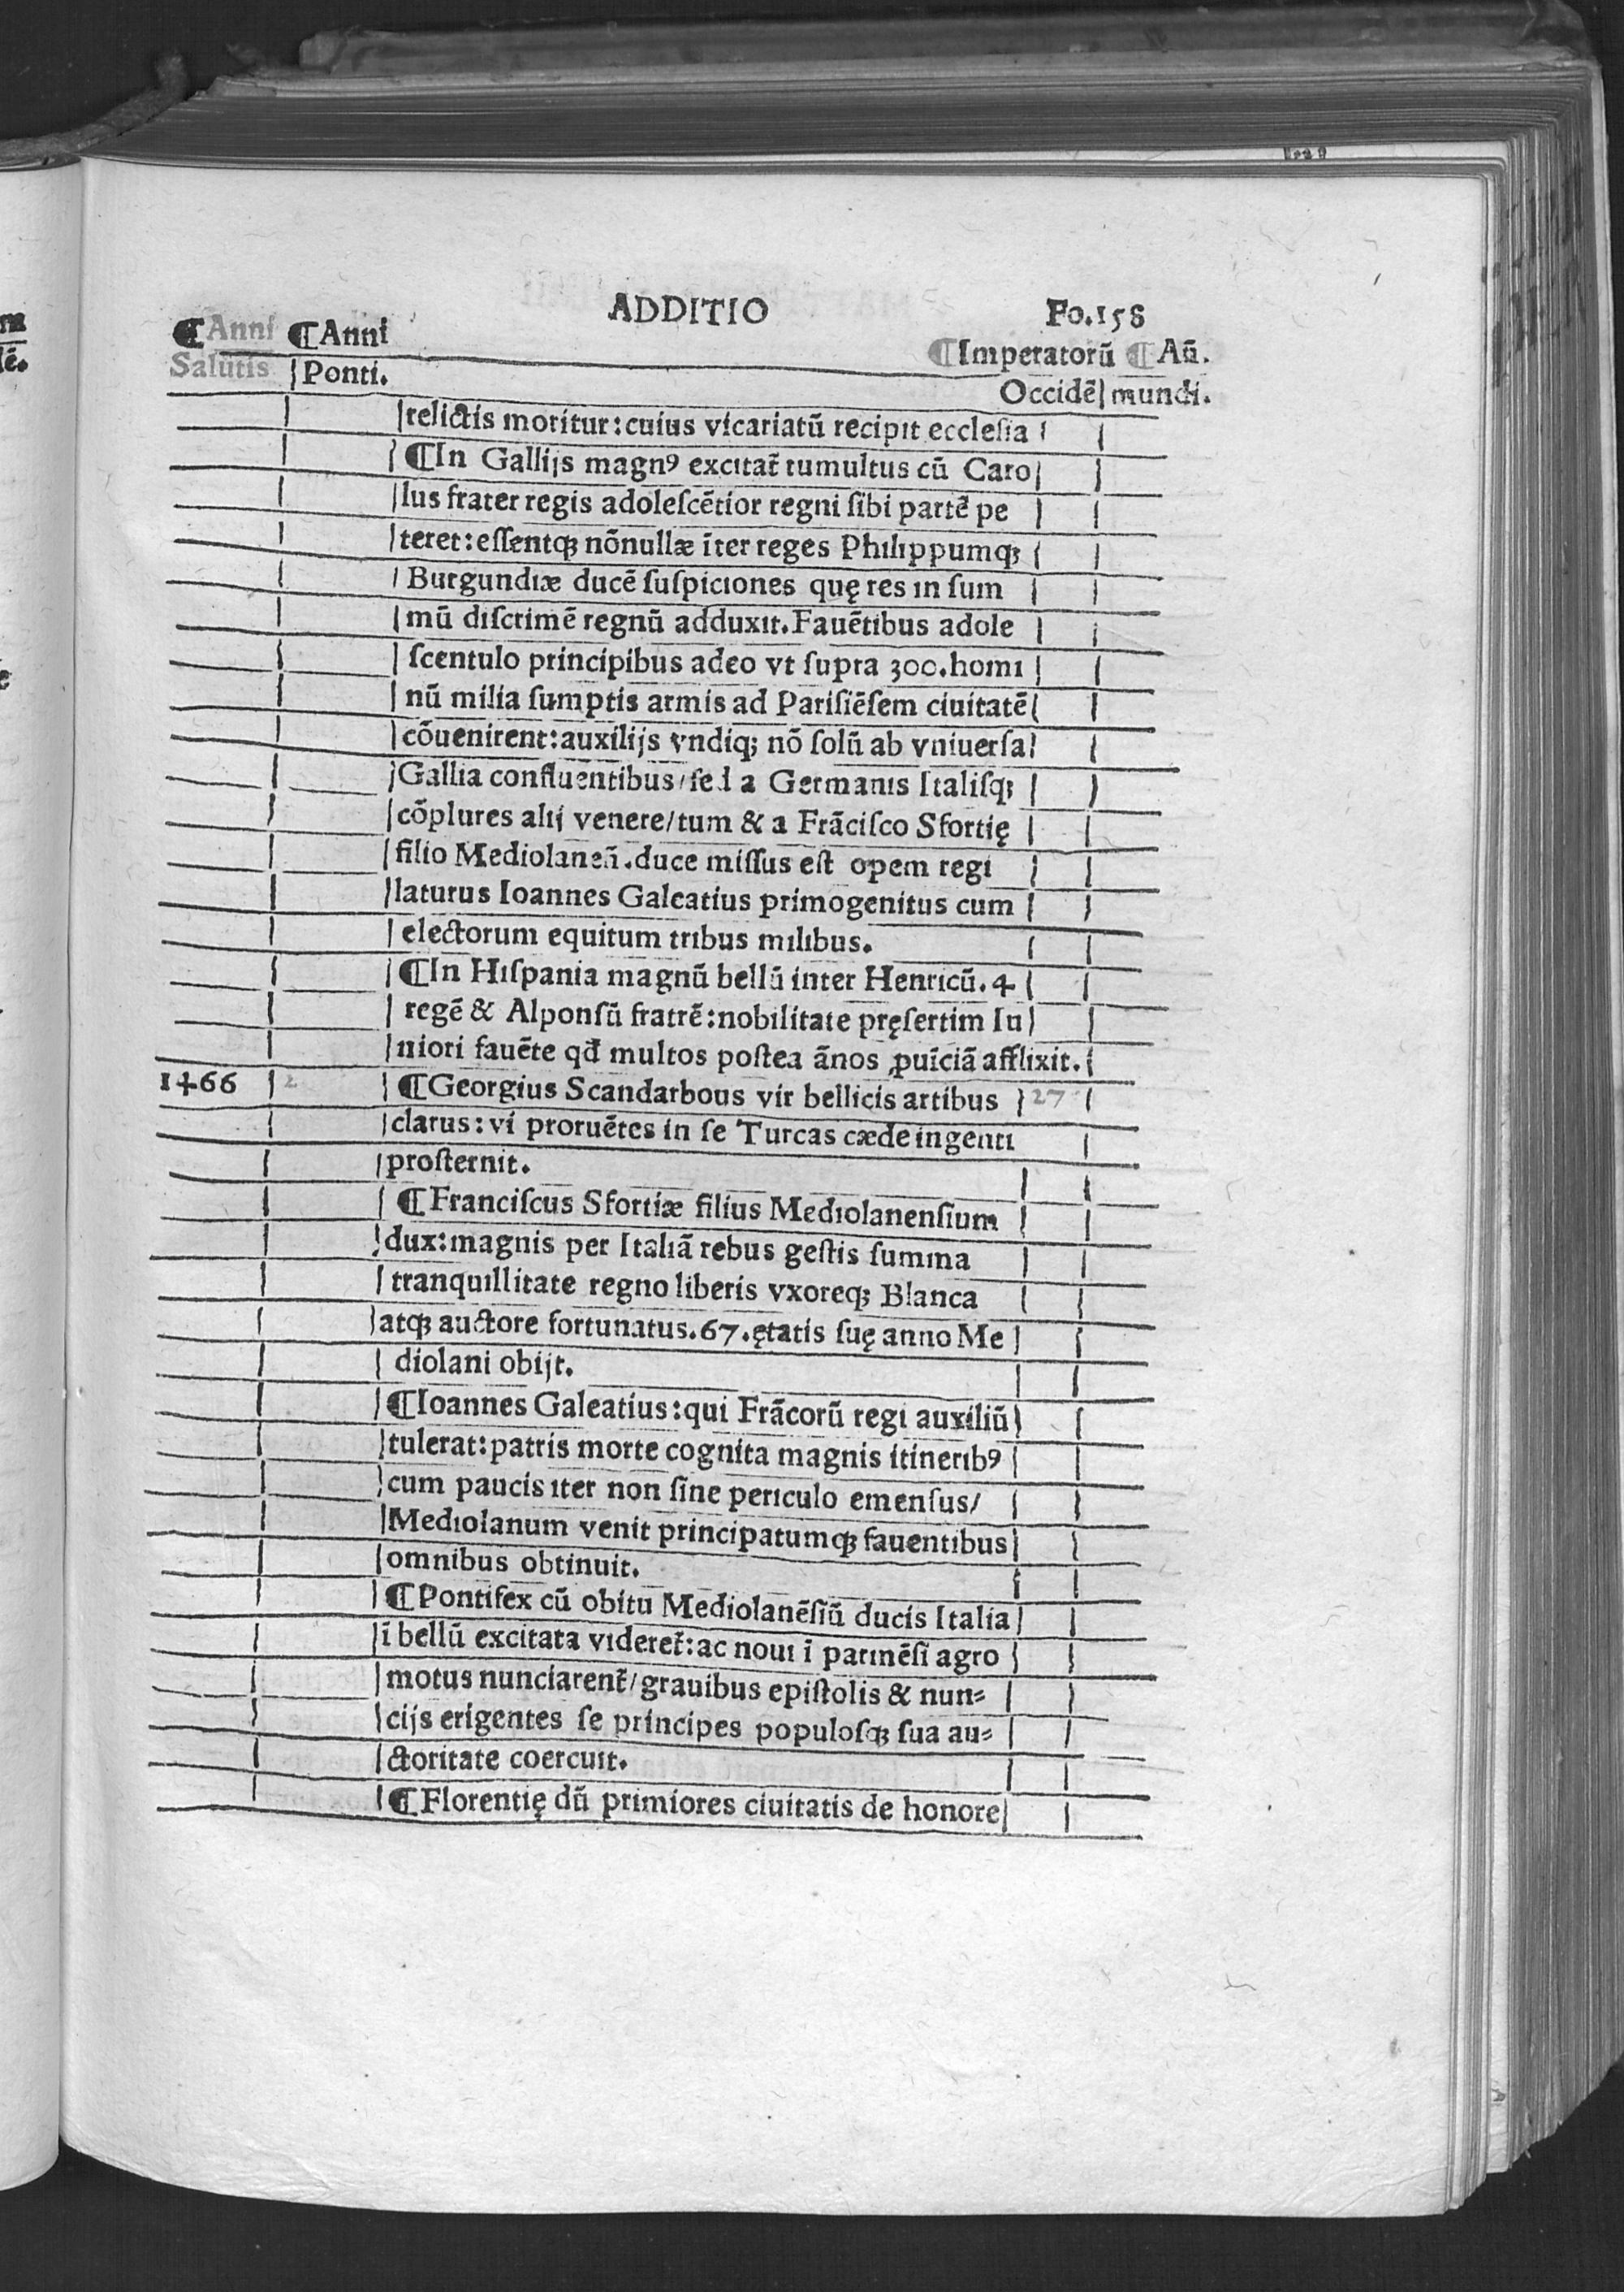 ADDITIO Fo.158
¶Anni ¶Anni ¶Imperatorū ¶Añ.
Salutis Ponti. Occidē mundi.
relictis moritur:cuius vicariatū recipit ecclesia
¶In Gallijs magnꝰ excitat̃ tumultus cū Caro
lus frater regis adolescētior regni sibi partē pe
teret:essentqꝫ nōnullæ īter reges Philippumqꝫ
Burgundiæ ducē suspiciones quę res in sum
mū discrimē regnū adduxit.Fauētibus adole
scentulo principibus adeo vt supra 300.homi
nū milia sumptis armis ad Parisiēsem ciuitatē
cōuenirent:auxilijs vndiqꝫ nō solū ab vniuersa
Gallia confluentibus/sed a Germanis Italisqꝫ
cōplures alij venere/tum & a Frācisco Sfortię
filio Mediolaneā.duce missus est opem regi
laturus Ioannes Galeatius primogenitus cum
electorum equitum tribus milibus.
¶In Hispania magnū bellū inter Henricū.4
regē & Alponsū fratrē:nobilitate pręsertim Iu
niori fauēte qđ multos postea ānos ꝓuīciā afflixit.
1466 2 ¶Georgius Scandarbous vir bellicis artibus 27
clarus:vi proruētes in se Turcas cæde ingenti
prosternit.
¶Franciscus Sfortiæ filius Mediolanensium
dux:magnis per Italiā rebus gestis summa
tranquillitate regno liberis vxoreqꝫ Blanca
atqꝫ auctore fortunatus.67.ętatis suę anno Me
diolani obijt.
¶Ioannes Galeatius:qui Frācorū regi auxiliū
tulerat:patris morte cognita magnis itineribꝰ
cum paucis iter non sine periculo emensus/
Mediolanum venit principatumqꝫ fauentibus
omnibus obtinuit.
¶Pontifex cū obitu Mediolanēsiū ducis Italia
ī bellū excitata videret̃:ac noui ī parmēsi agro
motus nunciarent̃/grauibus epistolis & nun⸗
cijs erigentes se principes populosqꝫ sua au⸗
ctoritate coercuit.
¶Florentię dū primiores ciuitatis de honore